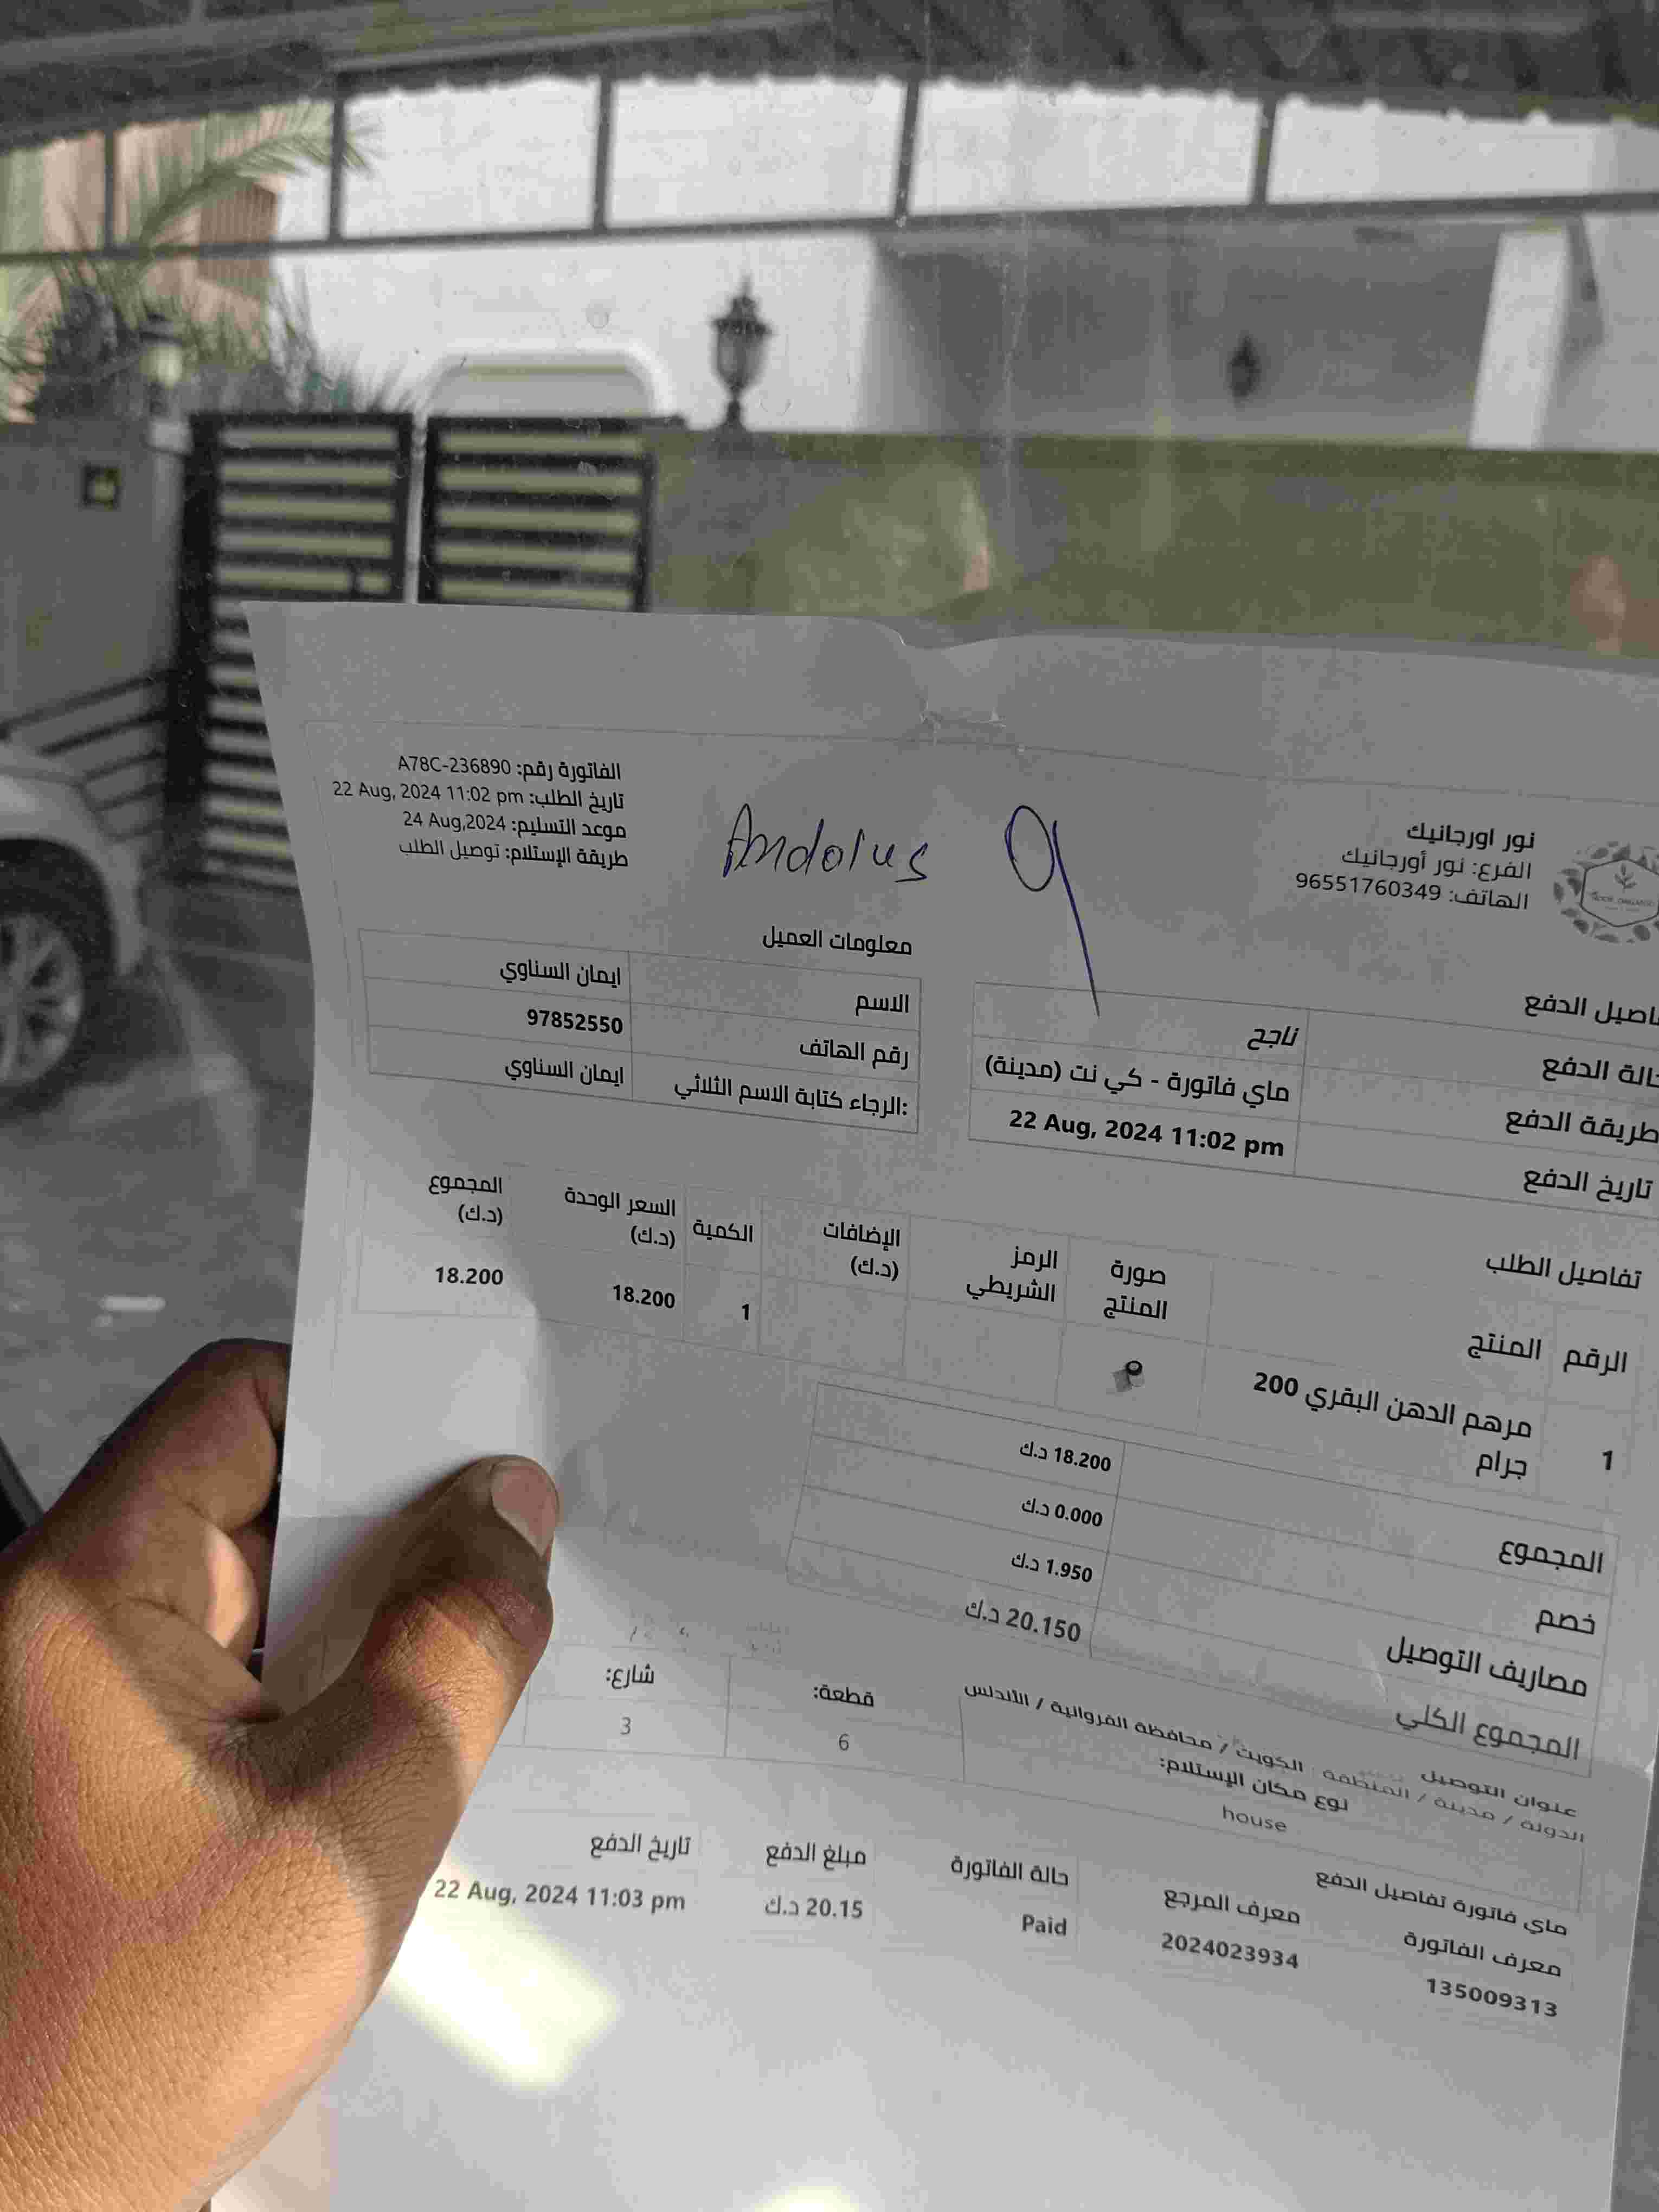 نور اورجانيك
الفرع: نور أورجانيك
الهاتف: 96551760349
Andolus 9
الفاتورة رقم: A78C-236890
تاريخ الطلب: 22 Aug, 2024 11:02 pm
موعد التسليم: 24 Aug,2024
طريقة الإستلام: توصيل الطلب
الدفع
الدفع ناجح
طريقة الدفع ماي فاتورة - كي نت (مدينة)
تاريخ الدفع 22 Aug, 2024 11:02 pm
معلومات العميل
الاسم ايمان السناوي
رقم الهاتف 97852550
الرجاء كتابة الاسم الثلاثي: ايمان السناوي
تفاصيل الطلب
الرقم المنتج صورة المنتج الرمز الشريطي الإضافات (د.ك) الكمية السعر الوحدة (د.ك) المجموع (د.ك)
1 مرهم الدهن البقري 200 جرام 1 18.200 18.200
المجموع 18.200 د.ك
خصم 0.000 د.ك
مصاريف التوصيل 1.950 د.ك
المجموع الكلي 20.150 د.ك
عنوان التوصيل
الدولة / مدينة / المنطقة : الكويت / محافظة الفروانية / الأندلس
نوع مكان الإستلام: قطعة: شارع:
house 6 3
ماي فاتورة تفاصيل الدفع
معرف الفاتورة معرف المرجع حالة الفاتورة مبلغ الدفع تاريخ الدفع
135009313 2024023934 Paid 20.15 د.ك 22 Aug, 2024 11:03 pm